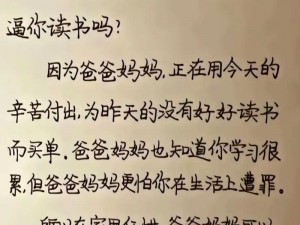 逼你读书吗？
因为爸爸妈妈，正在用今天的
辛苦付出，为昨天的没有好好读书
而买单。爸爸妈妈也知道你学习很
累，但爸爸妈妈更怕你在生活上遭罪。